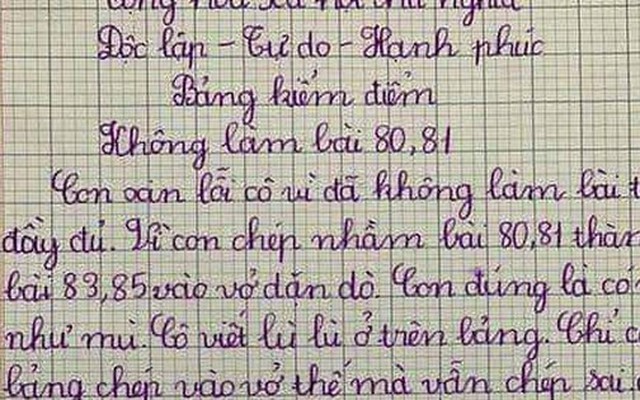 Cộng hòa xã hội chủ nghĩa
Độc lập - Tự do - Hạnh phúc
Bảng kiểm điểm
Không làm bài 80,81
Con xin lỗi cô vì đã không làm bài t
đầy đủ. Vì con chép nhầm bài 80,81 thàn
bài 83,85 vào vở dặn dò. Con đúng là có
như mù. Cô viết lù lù ở trên bảng. Chỉ c
bảng chép vào vở thế mà vẫn chép sai